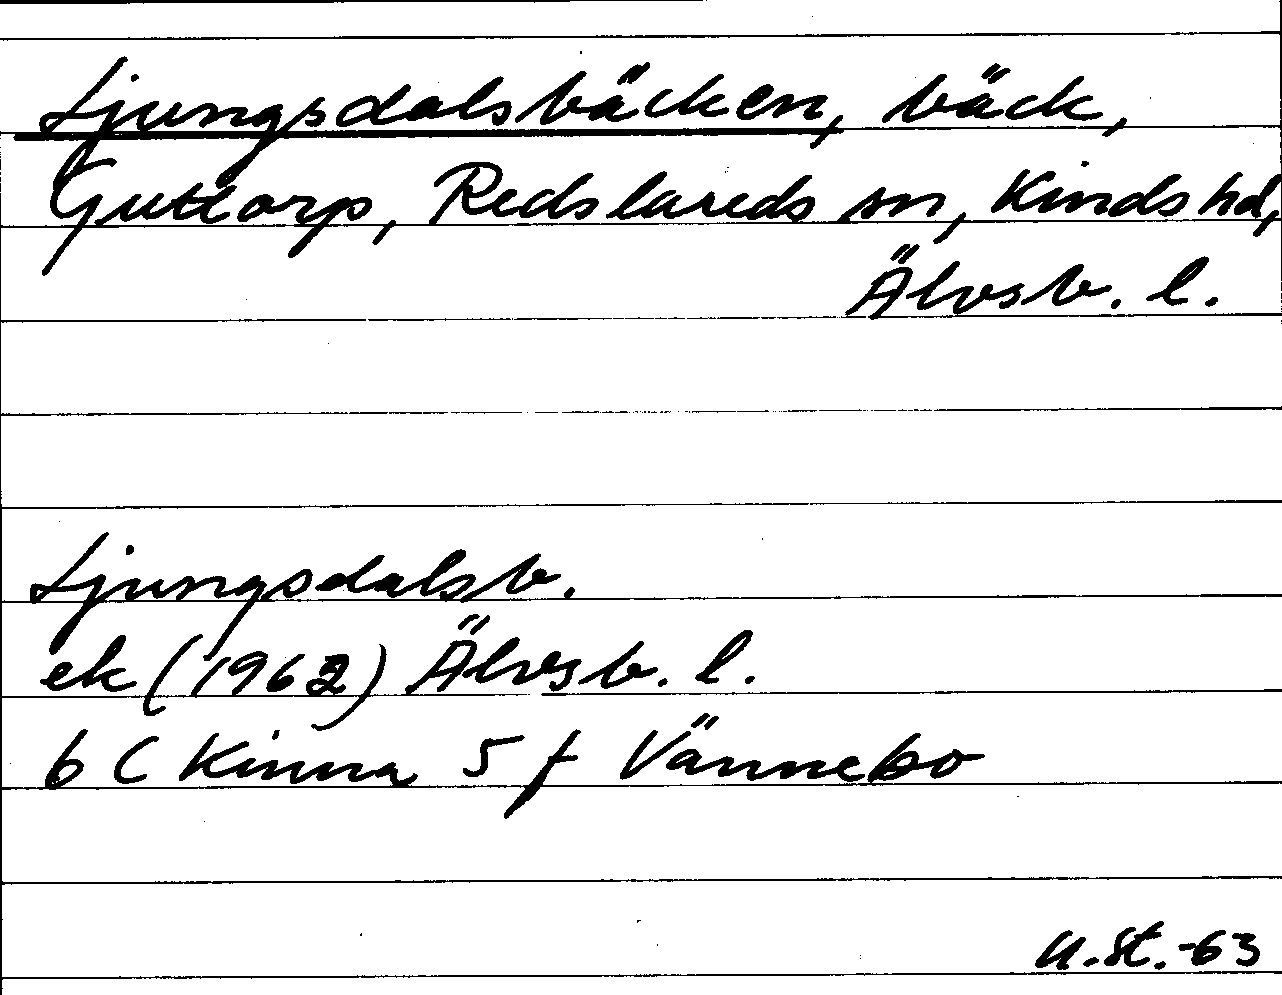 Ljungsdalsbäcken, bäck,
Guttorp, Redslareds sn, Kinds hd,
Älvsb. l.
Ljungsdalsb.
ek (1962) Älvsb. l.
6 C Kinna 5 f Vännebo
U.St.-63